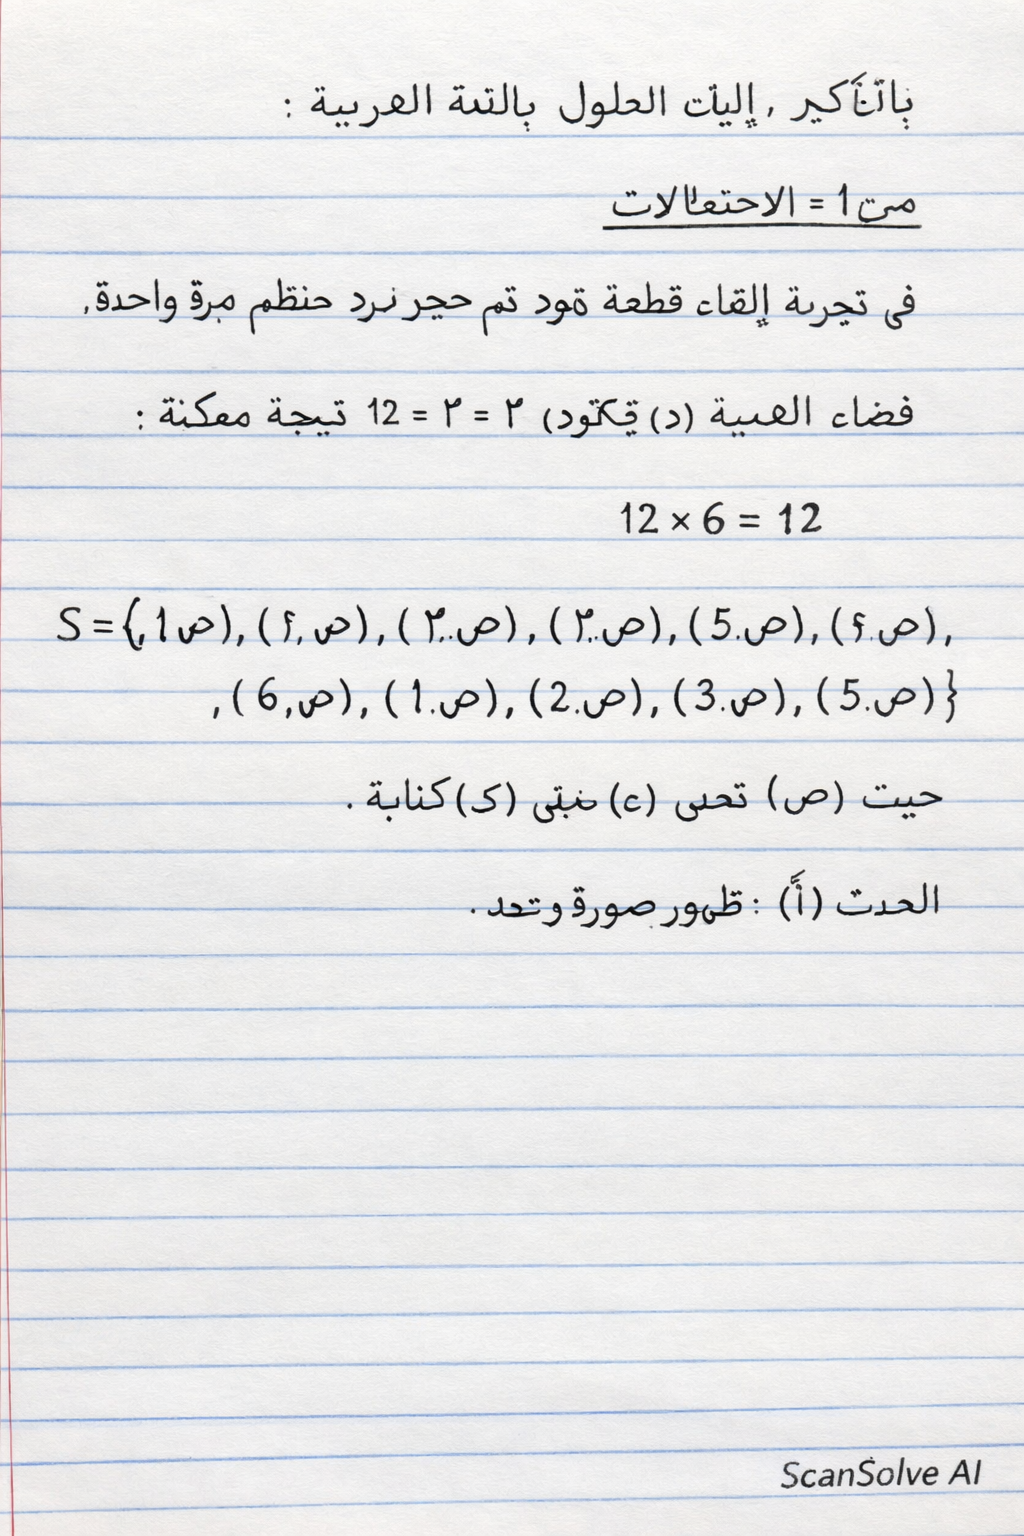 بالتأكير , إليك الحلول بالتىة العربية :
من 1 = الاحتعالات
فى تجربة إلقاء قطعة ةود تم حجر نرد حنظم مرة واحدة,
فضاء العىية (د) 12 = ٣ = ٣ تيجة معكنة :
12 × 6 = 12
S = {(ص 1), (ص , ٤), (ص.٣), (ص.٣), (ص.5), (ص.٤),
(ص,6), (ص.1), (ص.2), (ص.3), (ص.5)}
حيت (ص) تعىى (c) (ك) كتابة .
الحدت (أ) : ظهور صورة وتعد .
ScanSolve AI